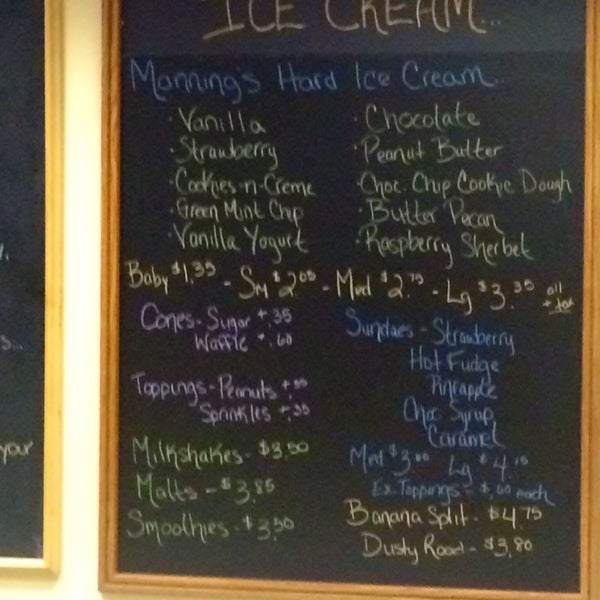 ICE CREAM...
Manning's Hard Ice Cream...
· Vanilla
· Strawberry
· Cookies-n-Creme
· Green Mint Chip
· Vanilla Yogurt
· Chocolate
· Peanut Butter
· Choc. Chip Cookie Dough
· Butter Pecan
· Raspberry Sherbet
Baby $1.35 - Sm $2.05 - Med $2.75 - Lg $3.35 all + tax
Cones - Sugar +.35
Waffle +.60
Toppings - Peanuts
Sprinkles +.35
Milkshakes - $3.50
Malts - $3.85
Smoothies - $3.50
Sundaes - Strawberry
Hot Fudge
Pineapple
Choc Syrup
Caramel
Med $3.00 Lg $4.15
Ex. Toppings - $.60 each
Banana Split - $4.75
Dusty Road - $3.80
your